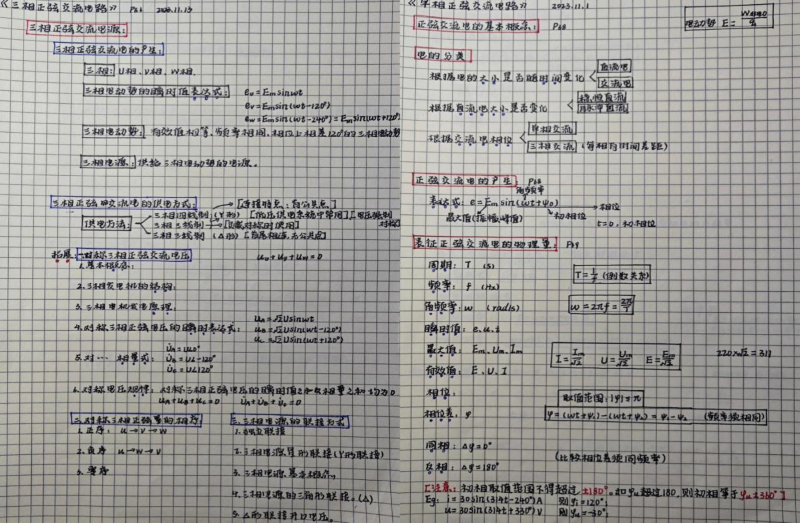 《三相正弦交流电路》 2023.11.13
三相正弦交流电源:
三相正弦交流电的产生:
三相: U相、V相、W相.
三相电动势的瞬时值表达式: eu = Em sin ωt
ev = Em sin(ωt-120°)
ew = Em sin(ωt-240°) = Em sin(ωt+120°)
三相电动势: 有效值相等, 频率相同, 相位上相差120°的三相电动势
三相电源: 供给三相电动势的电源.
三相正弦交流电的供电方式:
供电方法:
三相四线制 (Y形)
三相三线制
三相三线制 (△形)
拓展: 一.对称三相正弦交流电压
uu + uv + uw = 0
1.基本概念:
2.三相发电机的结构:
3.三相电机发电原理:
4.对称三相正弦电压的瞬时表达式: uu = √2 U sin ωt
uv = √2 U sin(ωt-120°)
uw = √2 U sin(ωt+120°)
5.对… 相量式: U̇u = U∠0°
U̇v = U∠-120°
U̇w = U∠120°
6.对称电压规律: 对称三相正弦电压的瞬时值之和及相量之和均为0
uu + uv + uw = 0 U̇u + U̇v + U̇w = 0
二.对称三相正弦量的相序
1.正序: U→V→W
2.负序 U→W→V
3.零序
三.三相电源的联接方式
1.独立联接
2.三相电源星形联接 (Y形联接)
3.三相电源基本概念.
4.三相电源的三角形联接. (△)
5.△形联接开口电压.
《单相正弦交流电路》 2023.11.1
正弦交流电的基本概念:
电动势 E =
电的分类
根据电的大小是否随时间变化
直流电
交流电
根据直流电大小是否变化
稳恒直流
脉冲直流
根据交流电相位
单相交流
三相交流 (每相有时间差距)
正弦交流电的产生:
角频率
表达式: e = Em sin(ωt+ψ0) → 相位
最大值(振幅/峰值) 初相位 t=0, 初相位
表征正弦交流电的物理量:
周期: T (s)
T = 1/f (倒数关系)
频率: f (Hz)
角频率: ω (rad/s)
ω = 2πf = 2π/T
瞬时值: e、u、i
最大值: Em、Um、Im
I = Im/√2 U = Um/√2 E = Em/√2
220×√2 = 311
有效值: E、U、I
相位:
取值范围: |φ| ≤ π
相位差: φ
φ = (ωt+ψ1) - (ωt+ψ2) = ψ1-ψ2 (频率须相同)
同相: Δφ = 0°
反相: Δφ = 180°
(比较相位差须同频率)
[注意: 初相取值范围不得超过±180°. 如φu超过180, 则初相等于φu±360°]
Eg: i = 30sin(314t-240°)A 则φi = 120°
u = 30sin(314t+330°)V 则φu = -30°